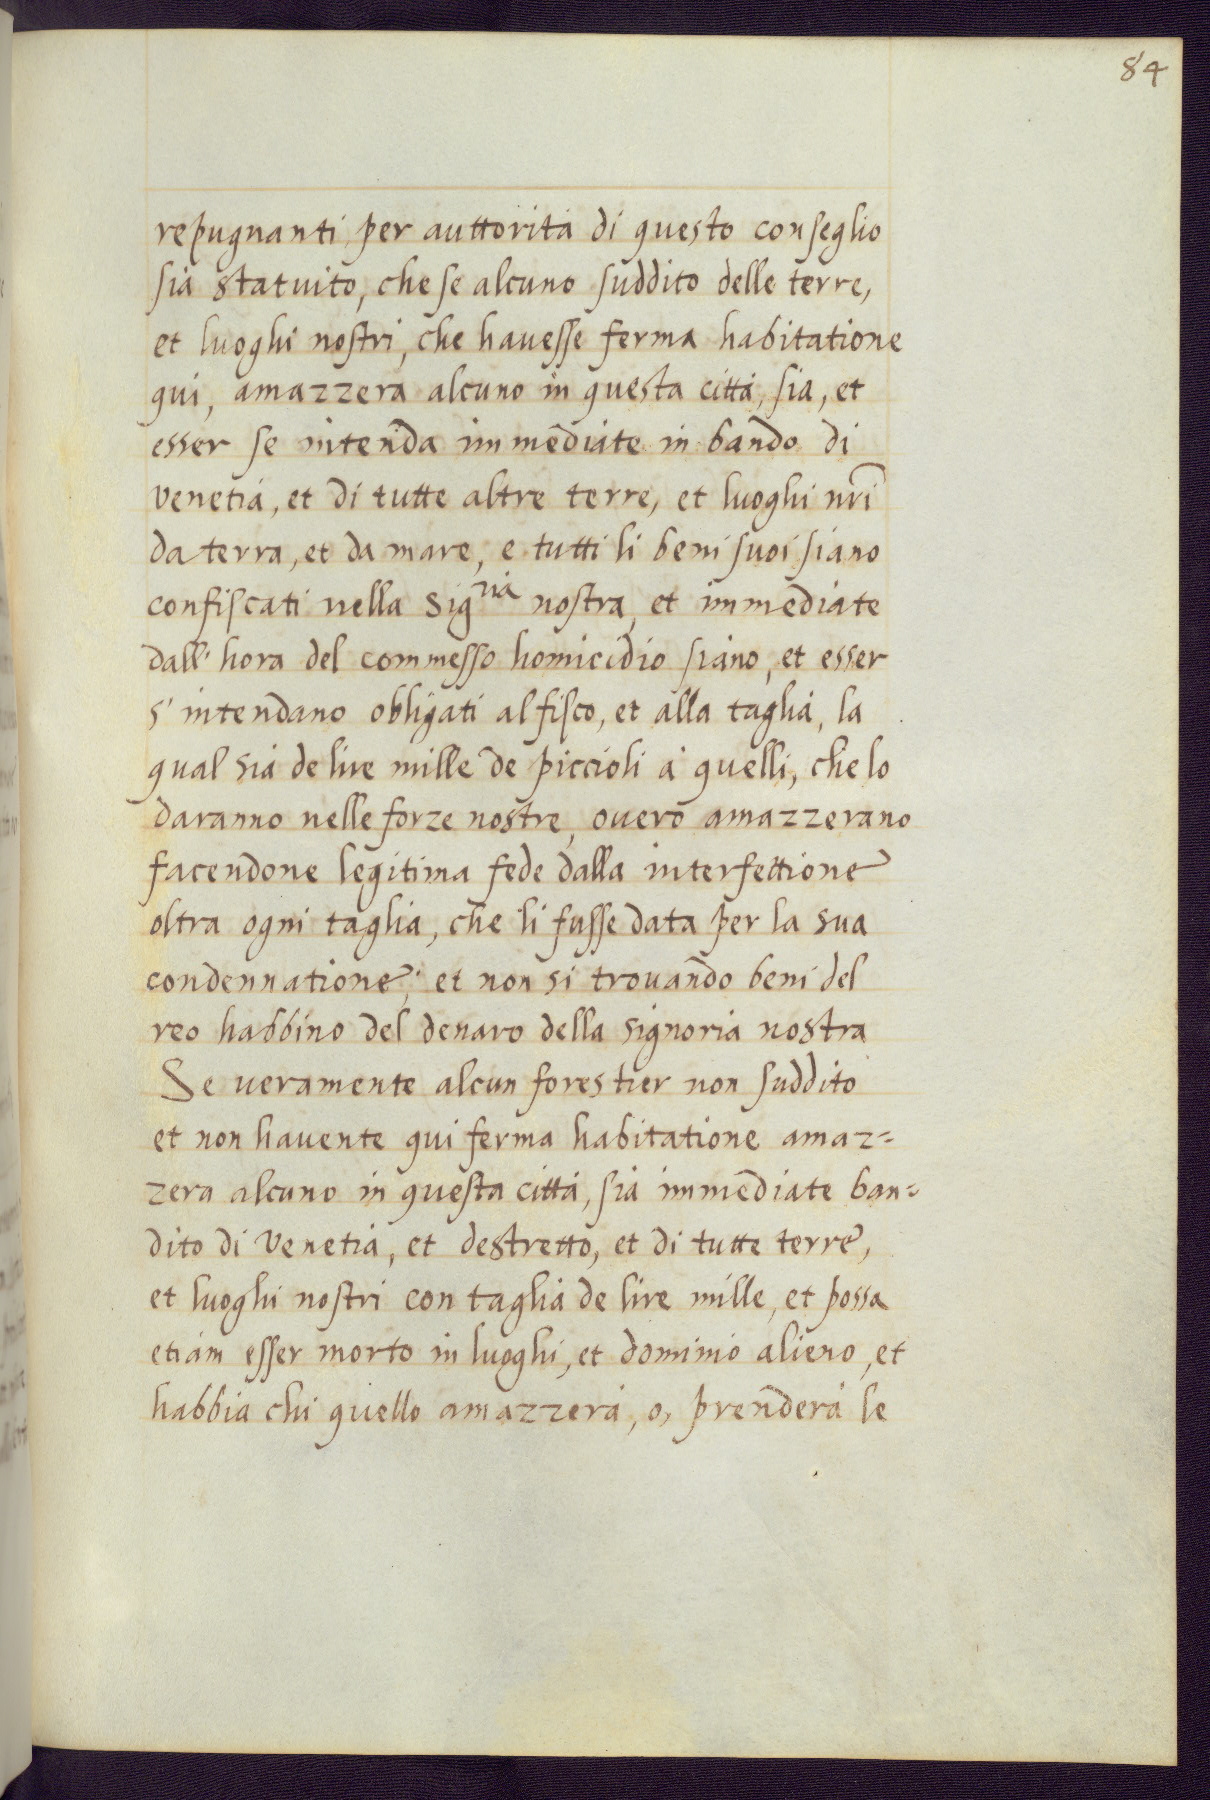 84
repugnanti, per auttorità di questo conseglio
sia statuito, che se alcuno suddito delle terre,
et luoghi nostri, che havesse ferma habitatione
qui, amazzera alcuno in questa città, sia, et
esser se intenda immediate in bando di
venetia, et di tutte altre terre, et luoghi nri̅
da terra, et da mare, e tutti li beni suoi siano
confiscati nella sig.ria nostra, et immediate
dall' hora del commesso homicidio siano, et esser
s' intendano obligati al fisco, et alla taglia, la
qual sia de lire mille de piccioli à quelli, che lo
daranno nelle forze nostre, overo amazzerano
facendone legitima fede dalla interfettione
oltra ogni taglia, che li fusse data per la sua
condennatione; et non si trovando beni del
reo habbino del denaro della signoria nostra
Se veramente alcun forestier non suddito
et non havente qui ferma habitatione amaz=
zera alcuno in questa città, sia immediate ban=
dito di Venetia, et destretto, et di tutte terre,
et luoghi nostri con taglia de lire mille, et possa
etiam esser morto in luoghi, et dominio alieno, et
habbia chi quello amazzerà, o, prenderà le